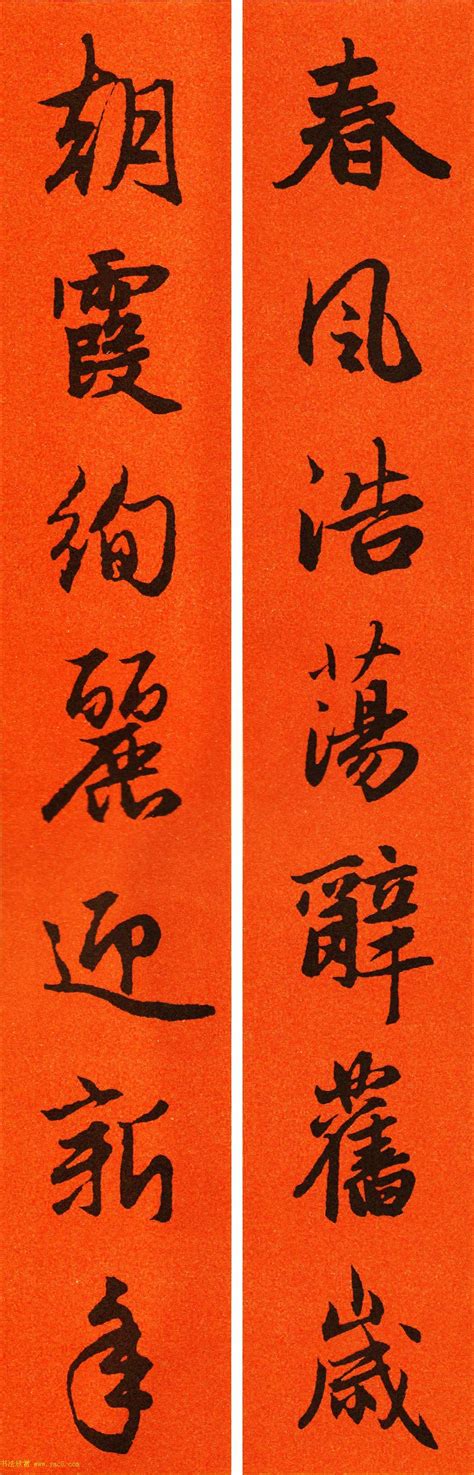 春风浩蕩辭舊歲
朝霞絢麗迎新年
书法欣赏 www.yac8.com